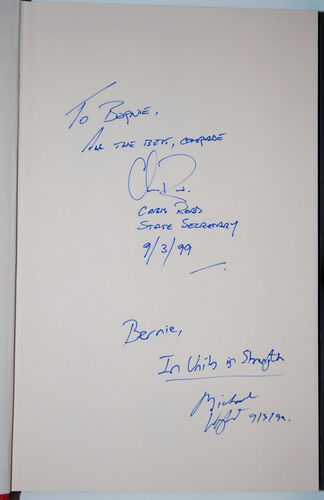 To BERNIE,
ALL THE BEST, COMRADE
CHRIS READ
STATE SECRETARY
9/3/99
Bernie,
In Unity is Strength
Michael
9/3/99.